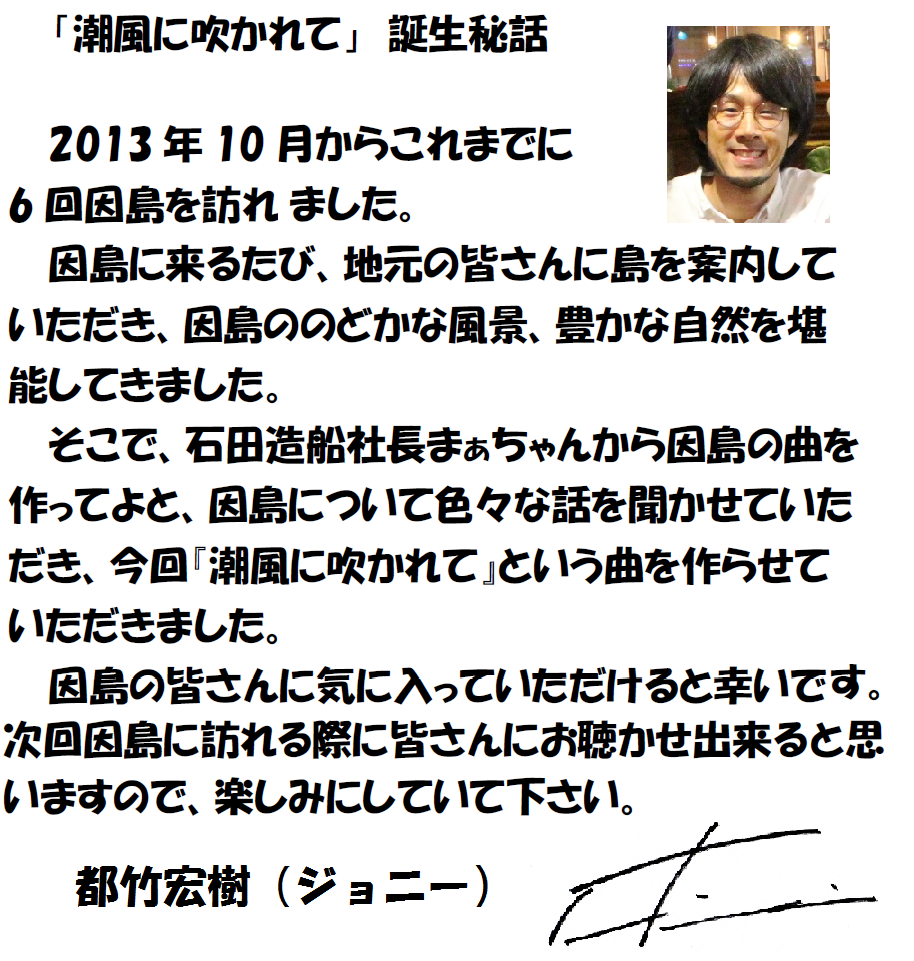 「潮風に吹かれて」 誕生秘話
2013年10月からこれまでに
6回因島を訪れ ました。
因島に来るたび、地元の皆さんに島を案内して
いただき、因島ののどかな風景、豊かな自然を堪
能してきました。
そこで、石田造船社長まぁちゃんから因島の曲を
作ってよと、因島について色々な話を聞かせていた
だき、今回『潮風に吹かれて』という曲を作らせて
いただきました。
因島の皆さんに気に入っていただけると幸いです。
次回因島に訪れる際に皆さんにお聴かせ出来ると思
いますので、楽しみにしていて下さい。
都竹宏樹（ジョニー）